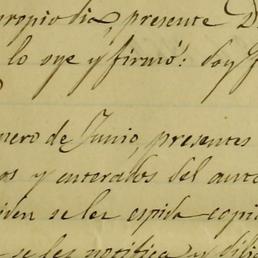 propio dia, presente D
lo oye y firmó: doy f
mero de Junio, presentes
os y enterados del auto
iden se les espida copi
se les notifica y dili